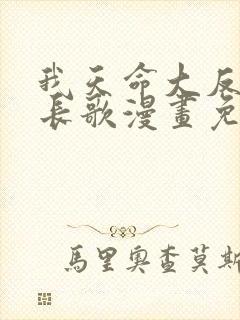 我天命大反
長歌漫畫免
馬里奧查莫斯